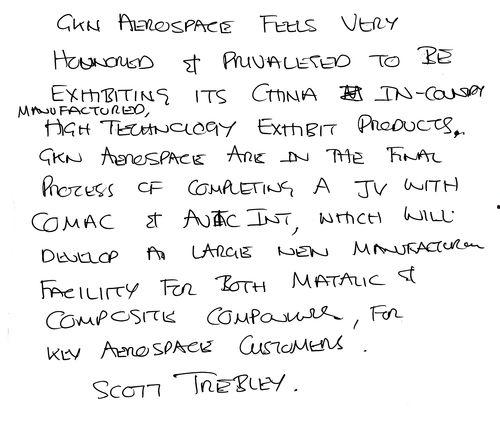 GKN AEROSPACE FEELS VERY
HONNORED & PRIVALETED TO BE
EXHIBITING ITS CHINA IN-COUNTRY
MANUFACTURED,
HIGH TECHNOLOGY EXHIBIT PRODUCTS.
GKN AEROSPACE ARE IN THE FINAL
PROCESS OF COMPLETING A JV WITH
COMAC & AVIC INT, WHICH WILL
DEVELOP A LARGE NEW MANUFACTURING
FACILITY FOR BOTH MATALIC &
COMPOSITE COMPONENTS, FOR
KEY AEROSPACE CUSTOMERS.
SCOTT TREBLEY.